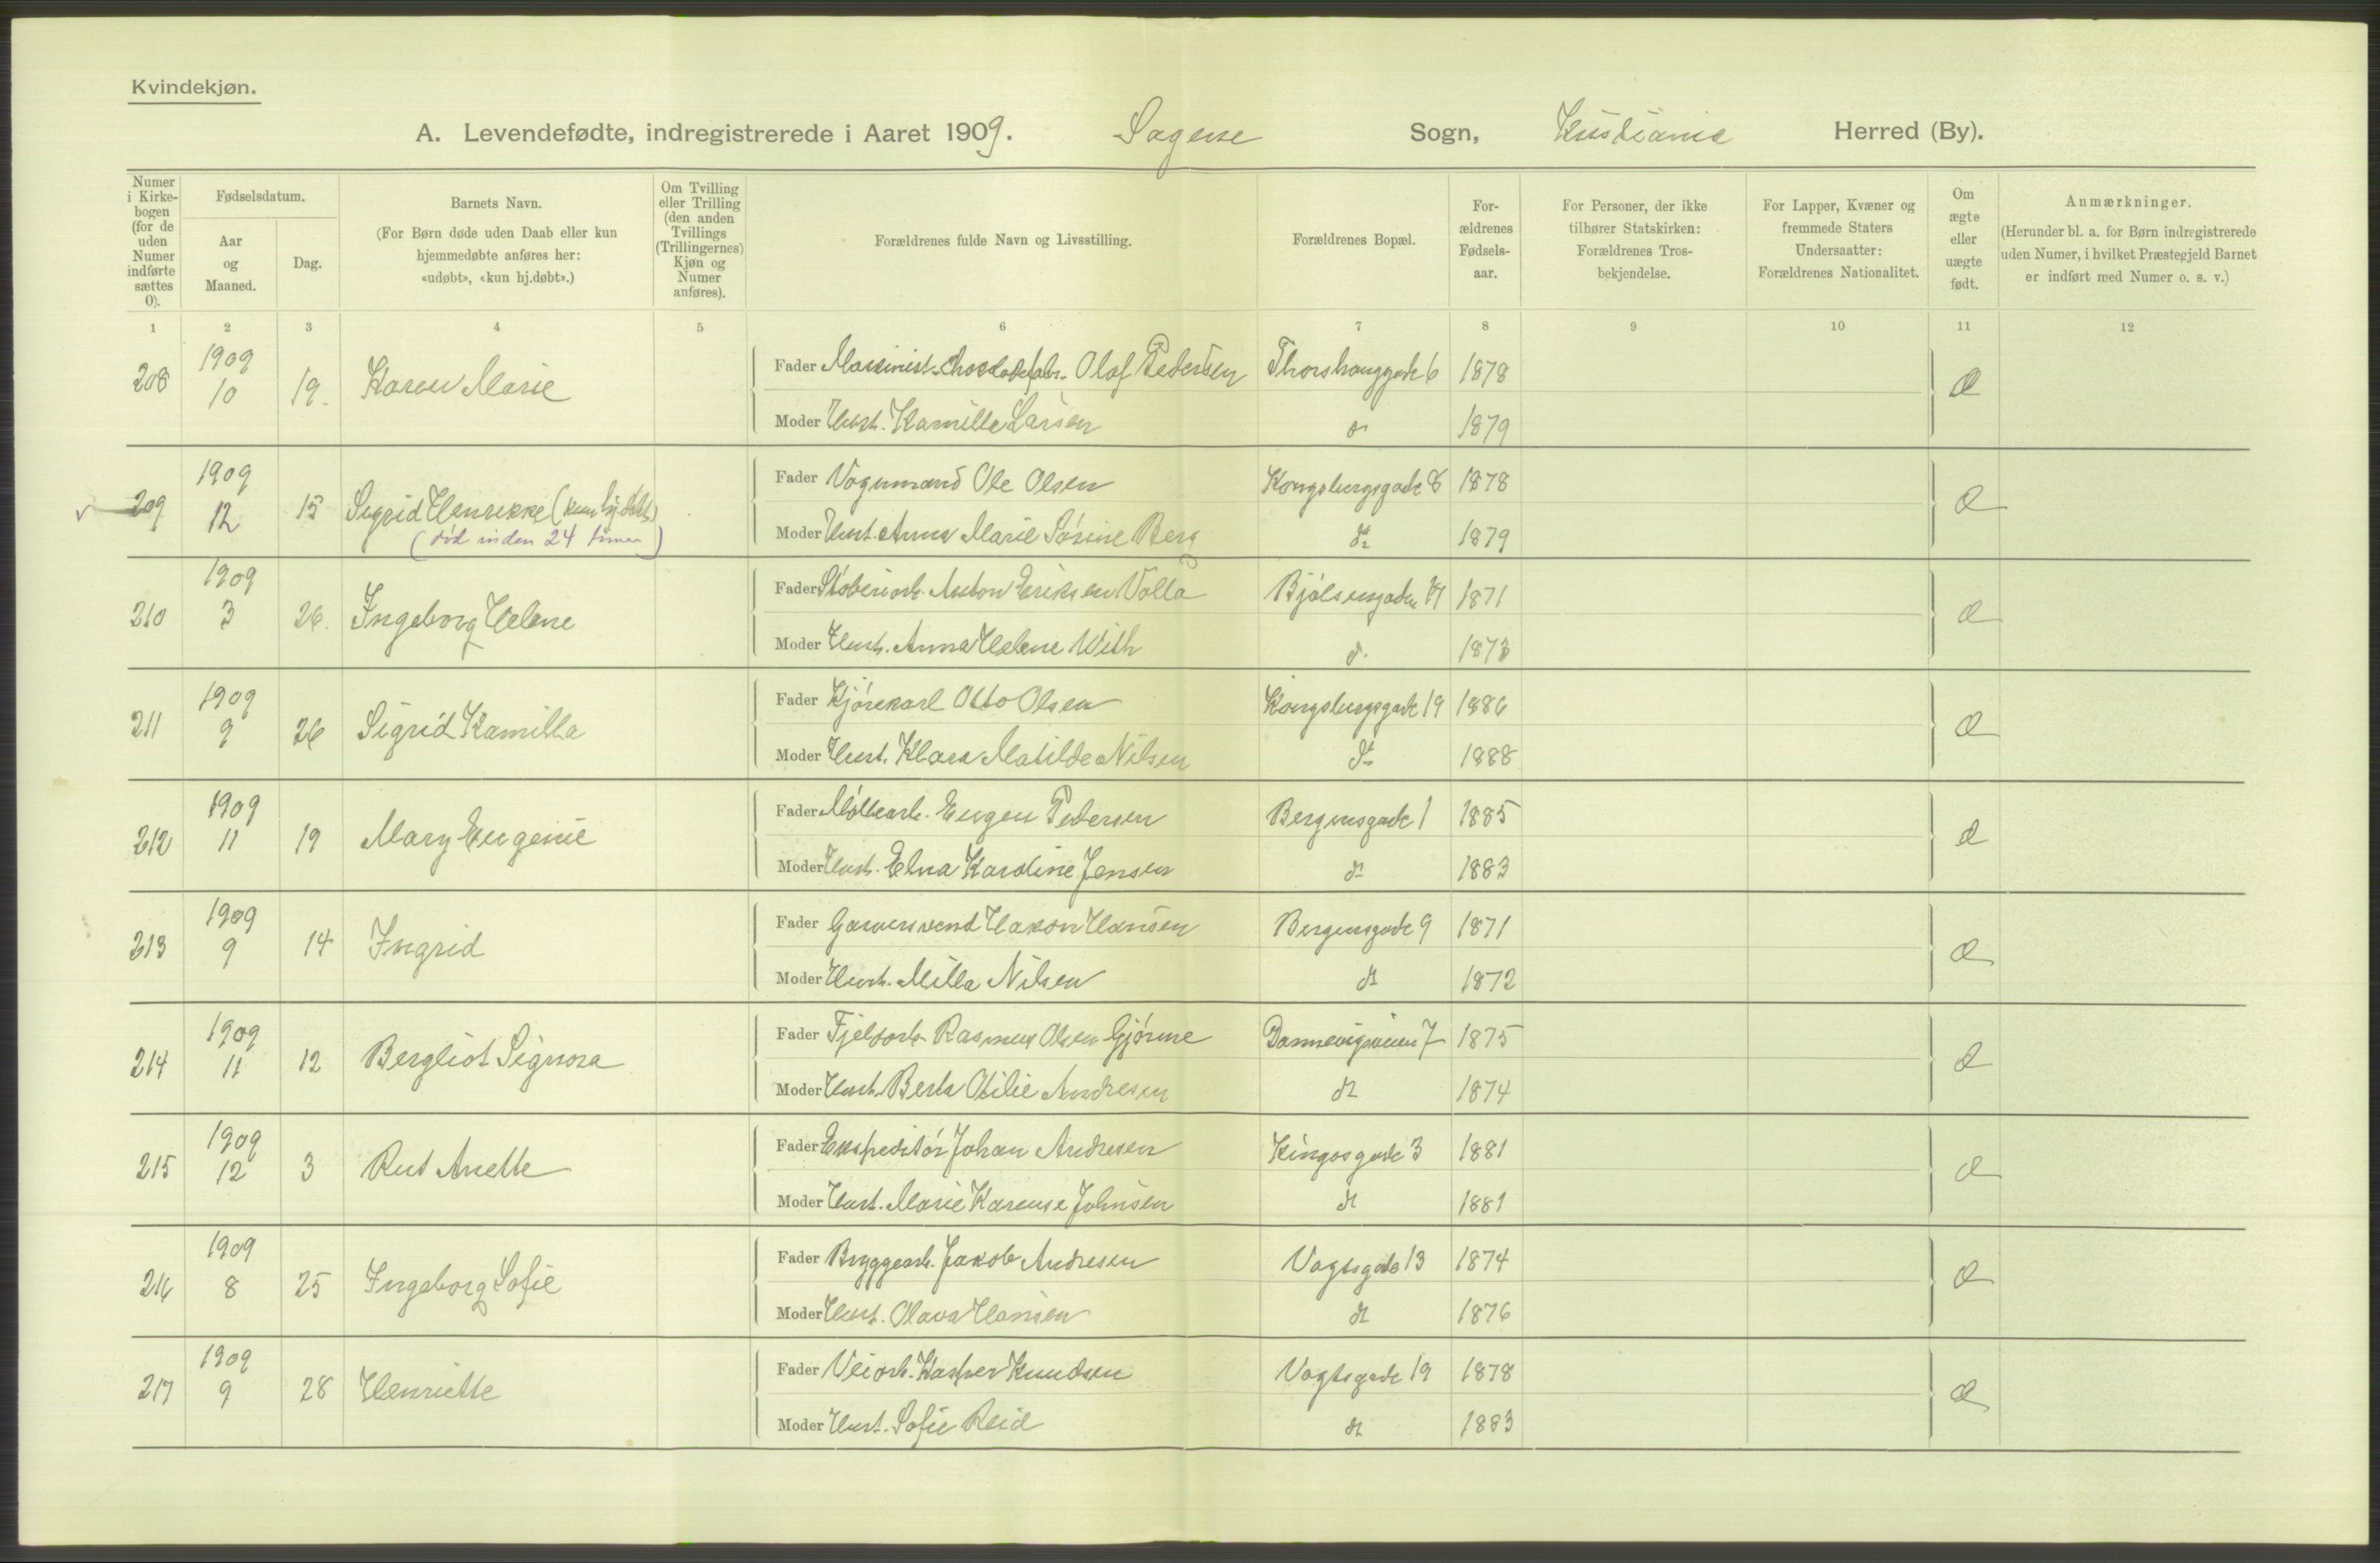 Kvindekjøn.
A. Levendefødte, indregistrerede i Aaret 1909. Sagene Sogn, Kristiania Herred (By).
Numer i Kirkebogen (for de uden Numer indførte sættes 0).
Fødselsdatum.
Aar og Maaned.
Dag.
Barnets Navn.
(For Børn døde uden Daab eller kun hjemmedøbte anføres her: «udøbt», «kun hj.døbt».)
Om Tvilling eller Trilling (den anden Tvillings (Trillingernes) Kjøn og Numer anføres).
Forældrenes fulde Navn og Livsstilling.
Forældrenes Bopæl.
Forældrenes Fødselsaar.
For Personer, der ikke tilhører Statskirken: Forældrenes Trosbekjendelse.
For Lapper, Kvæner og fremmede Staters Undersaatter: Forældrenes Nationalitet.
Om ægte eller uægte født.
Anmærkninger.
(Herunder bl. a. for Børn indregistrerede uden Numer, i hvilket Præstegjeld Barnet er indført med Numer o. s. v.)
1 2 3 4 5 6 7 8 9 10 11 12
208 1909 10 19. Karen Marie
Fader Maskinist Chocoladefabr. Olaf Pedersen Thorshauggade 6 1878 Æ
Moder Hust. Kamilla Larsen do 1879
209 1909 12 15 Sigrid Henrikke (kun hj.døbt)
(død inden 24 timer)
Fader Vognmand Ole Olsen Kongsbergsgade 8 1878 Æ
Moder Hust. Anna Marie Sørine Berg do 1879
210 1909 3 26. Ingeborg Helene
Fader Støberiarb. Anton Eriksen Volla Bjølsensgaden 1871 Æ
Moder Hust. Anna Helene With do 1873
211 1909 9 26 Sigrid Kamilla
Fader Kjørekarl Otto Olsen Kongsbergsgade 19 1886 Æ
Moder Hust. Klara Matilde Nilsen do 1888
212 1909 11 19 Mary Eugenie
Fader Møllearb. Eugen Pedersen Bergensgade 1 1885 Æ
Moder Hust. Elna Karoline Jensen do 1883
213 1909 9 14 Ingrid
Fader Garversvend Hakon Hansen Bergensgade 9 1871 Æ
Moder Hust. Milla Nilsen do 1872
214 1909 11 12 Bergliot Signora
Fader Fjeldarb. Rasmus Olsen Gjørme Dannevigsveien 7 1875 Æ
Moder Hust. Berta Otilie Andresen do 1874
215 1909 12 3 Rut Anette
Fader Ekspeditør Johan Andresen Kingosgade 3 1881 Æ
Moder Hust. Marie Karense Johnsen do 1881
216 1909 8 25 Ingeborg Sofie
Fader Bryggearb. Jakob Andresen Vogtsgade 13 1874 Æ
Moder Hust. Olava Hansen do 1876
217 1909 9 28 Henriette
Fader Veiarb. Kasper Knudsen Vogtsgade 19 1878 Æ
Moder Hust. Sofie Reid do 1883